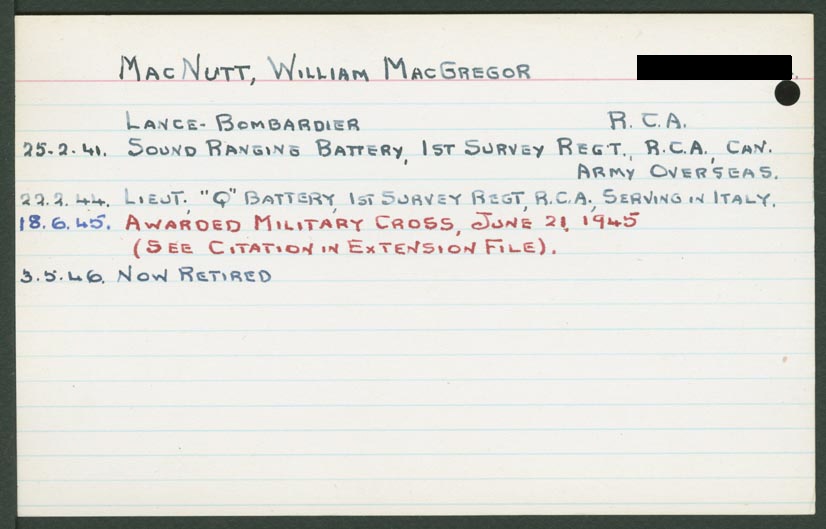 MacNutt, William MacGregor
Lance-Bombardier R.C.A.
25.2.41. Sound Ranging Battery, 1st Survey Regt., R.C.A., Can.
Army Overseas.
22.2.44. Lieut. "Q" Battery, 1st Survey Regt, R.C.A., Serving in Italy.
18.6.45. Awarded Military Cross, June 21, 1945
(See Citation in Extension File).
3.5.46. Now Retired